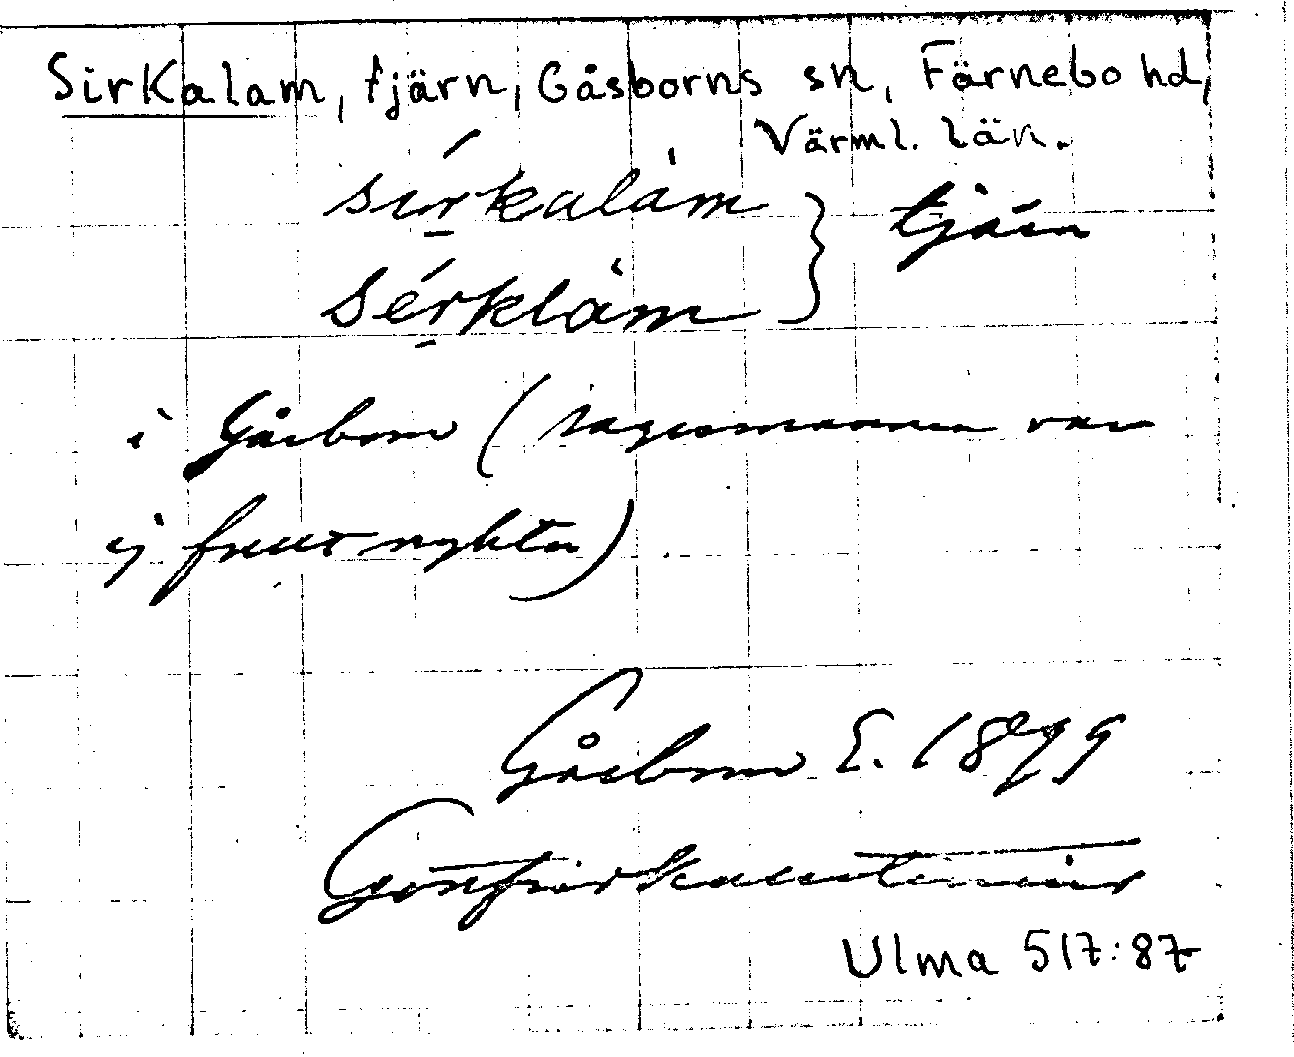 Sirkalam, tjärn, Gåsborns sn, Färnebo hd,
Värml. län.
sírkalàm } tjärn
sérklàm
i Gåsborn (sagesmannen var
ej fullt nykter)
Gåsborn S. 1899
Gottfrid Kallstenius
Ulma 517:87